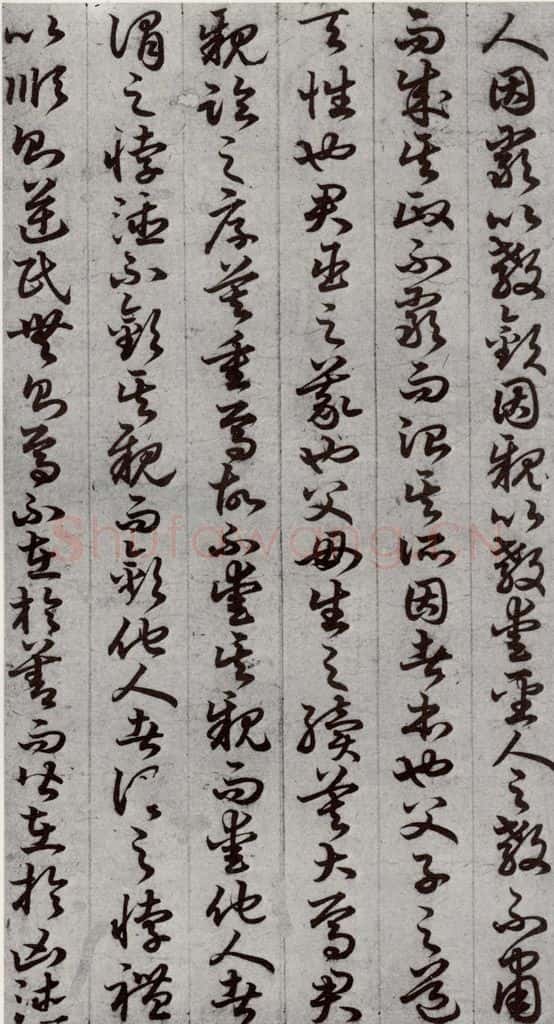 人因嚴以教敬因親以教愛聖人之教不肅
而成其政不嚴而治其所因者本也父子之道
天性也君臣之義也父母生之續莫大焉君
親臨之厚莫重焉故不愛其親而愛他人者
謂之悖德不敬其親而敬他人者謂之悖禮
以順則逆民無則焉不在於善而皆在於凶德
Shufawang.CN